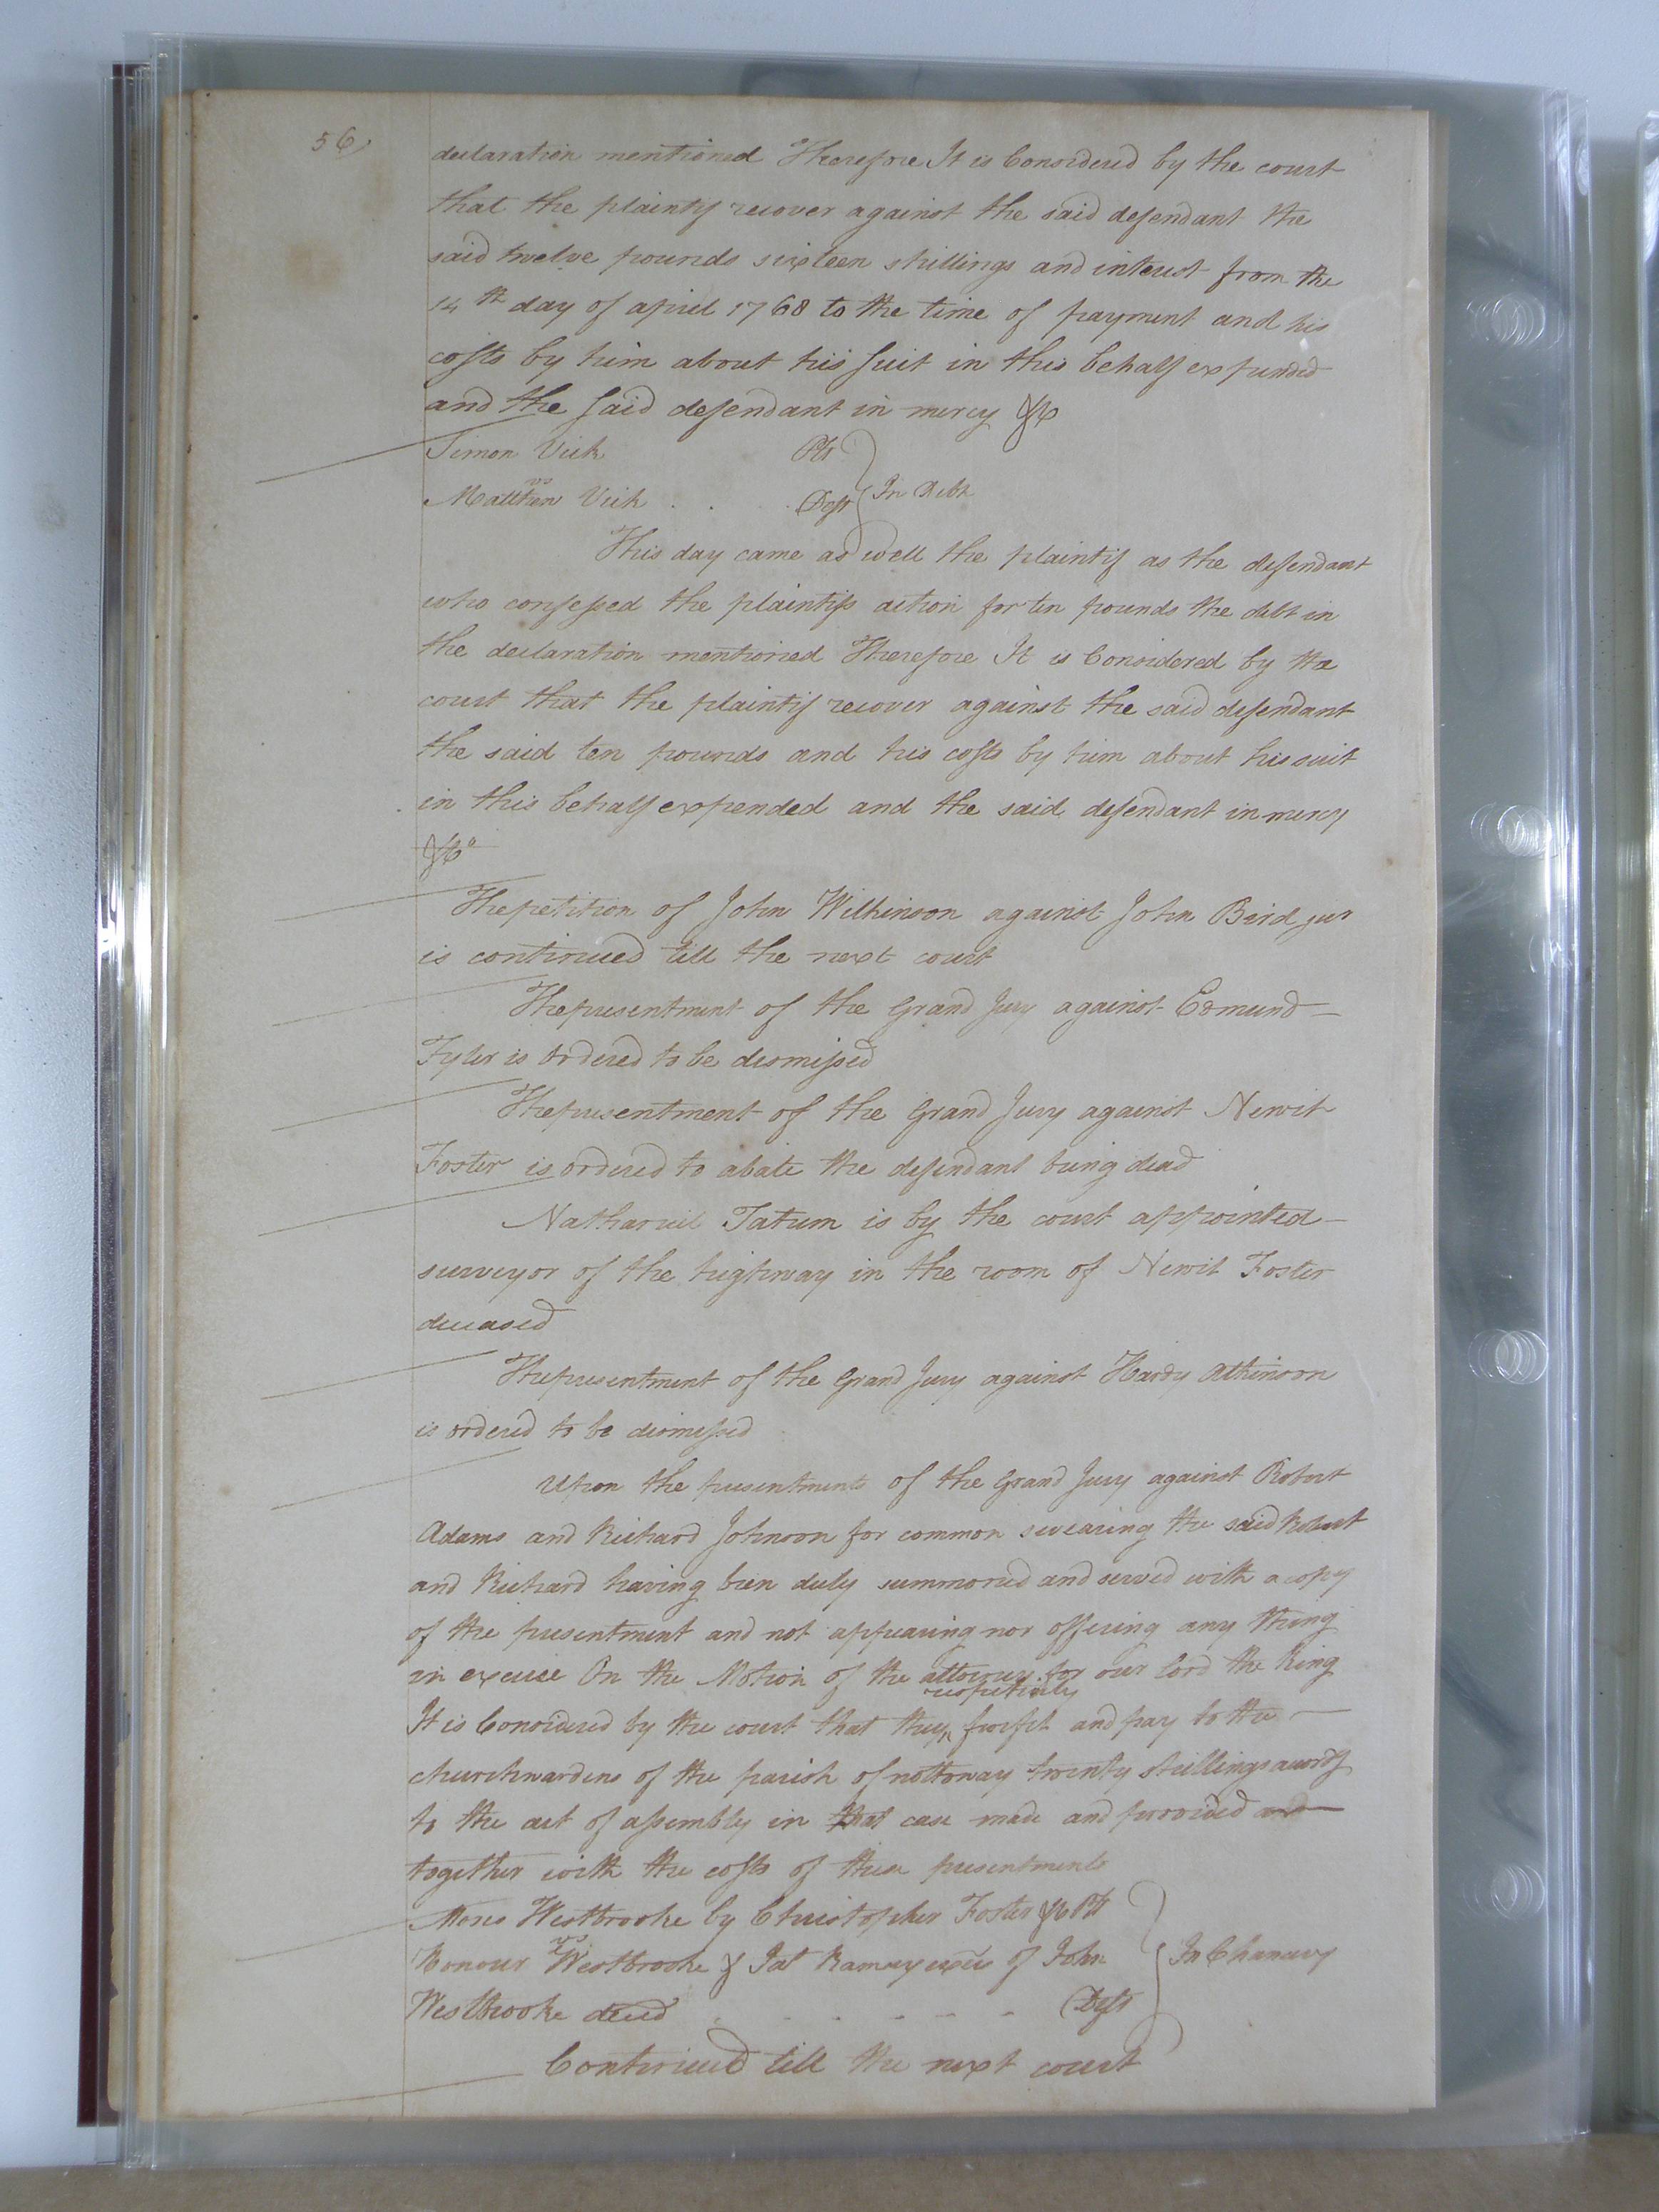 56
declaration mentioned Therefore It is Considered by the court
that the plaintif recover against the said defendant the
said twelve pounds sixteen shillings and interest from the
14th day of april 1768 to the time of payment and his
costs by him about his suit in this behalf expended
and the said defendant in mercy &c
Simon Vick Plt
vs
Matthew Vick . . . Deft In Debt
This day came as well the plaintif as the defendant
who confessed the plaintifs action for ten pounds the debt in
the declaration mentioned Therefore It is Considered by the
court that the plaintif recover against the said defendant
the said ten pounds and his costs by him about his suit
in this behalf expended and the said defendant in mercy
&ca
The petition of John Wilkinson against John Bird jur
is continued till the next court
The presentment of the Grand Jury against Edmund
Tyler is ordered to be dismissed
The presentment of the Grand Jury against Newit
Foster is ordered to abate the defendant being dead
Nathaniel Tatum is by the court appointed
surveyor of the highway in the room of Newit Foster
deceased
The presentment of the Grand Jury against Hardy Atkinson
is ordered to be dismissed
Upon the presentments of the Grand Jury against Robert
Adams and Richard Johnson for common swearing the said Robert
and Richard having been duly summoned and served with a copy
of the presentment and not appearing nor offering any thing
in excuse On the Motion of the attorney for our lord the King
respectively
It is Considered by the court that they forfeit and pay to the
churchwardens of the parish of nottoway twenty shillings accordg
to the act of assembly in that case made and provided and
together with the costs of these presentments
Moses Westbrooke by Christopher Foster &c Plt
vs
Honour Westbrooke & Jas Ramsey exers of John In Chancery
Westbrooke decd . . . . . . Defts
Continued till the next court